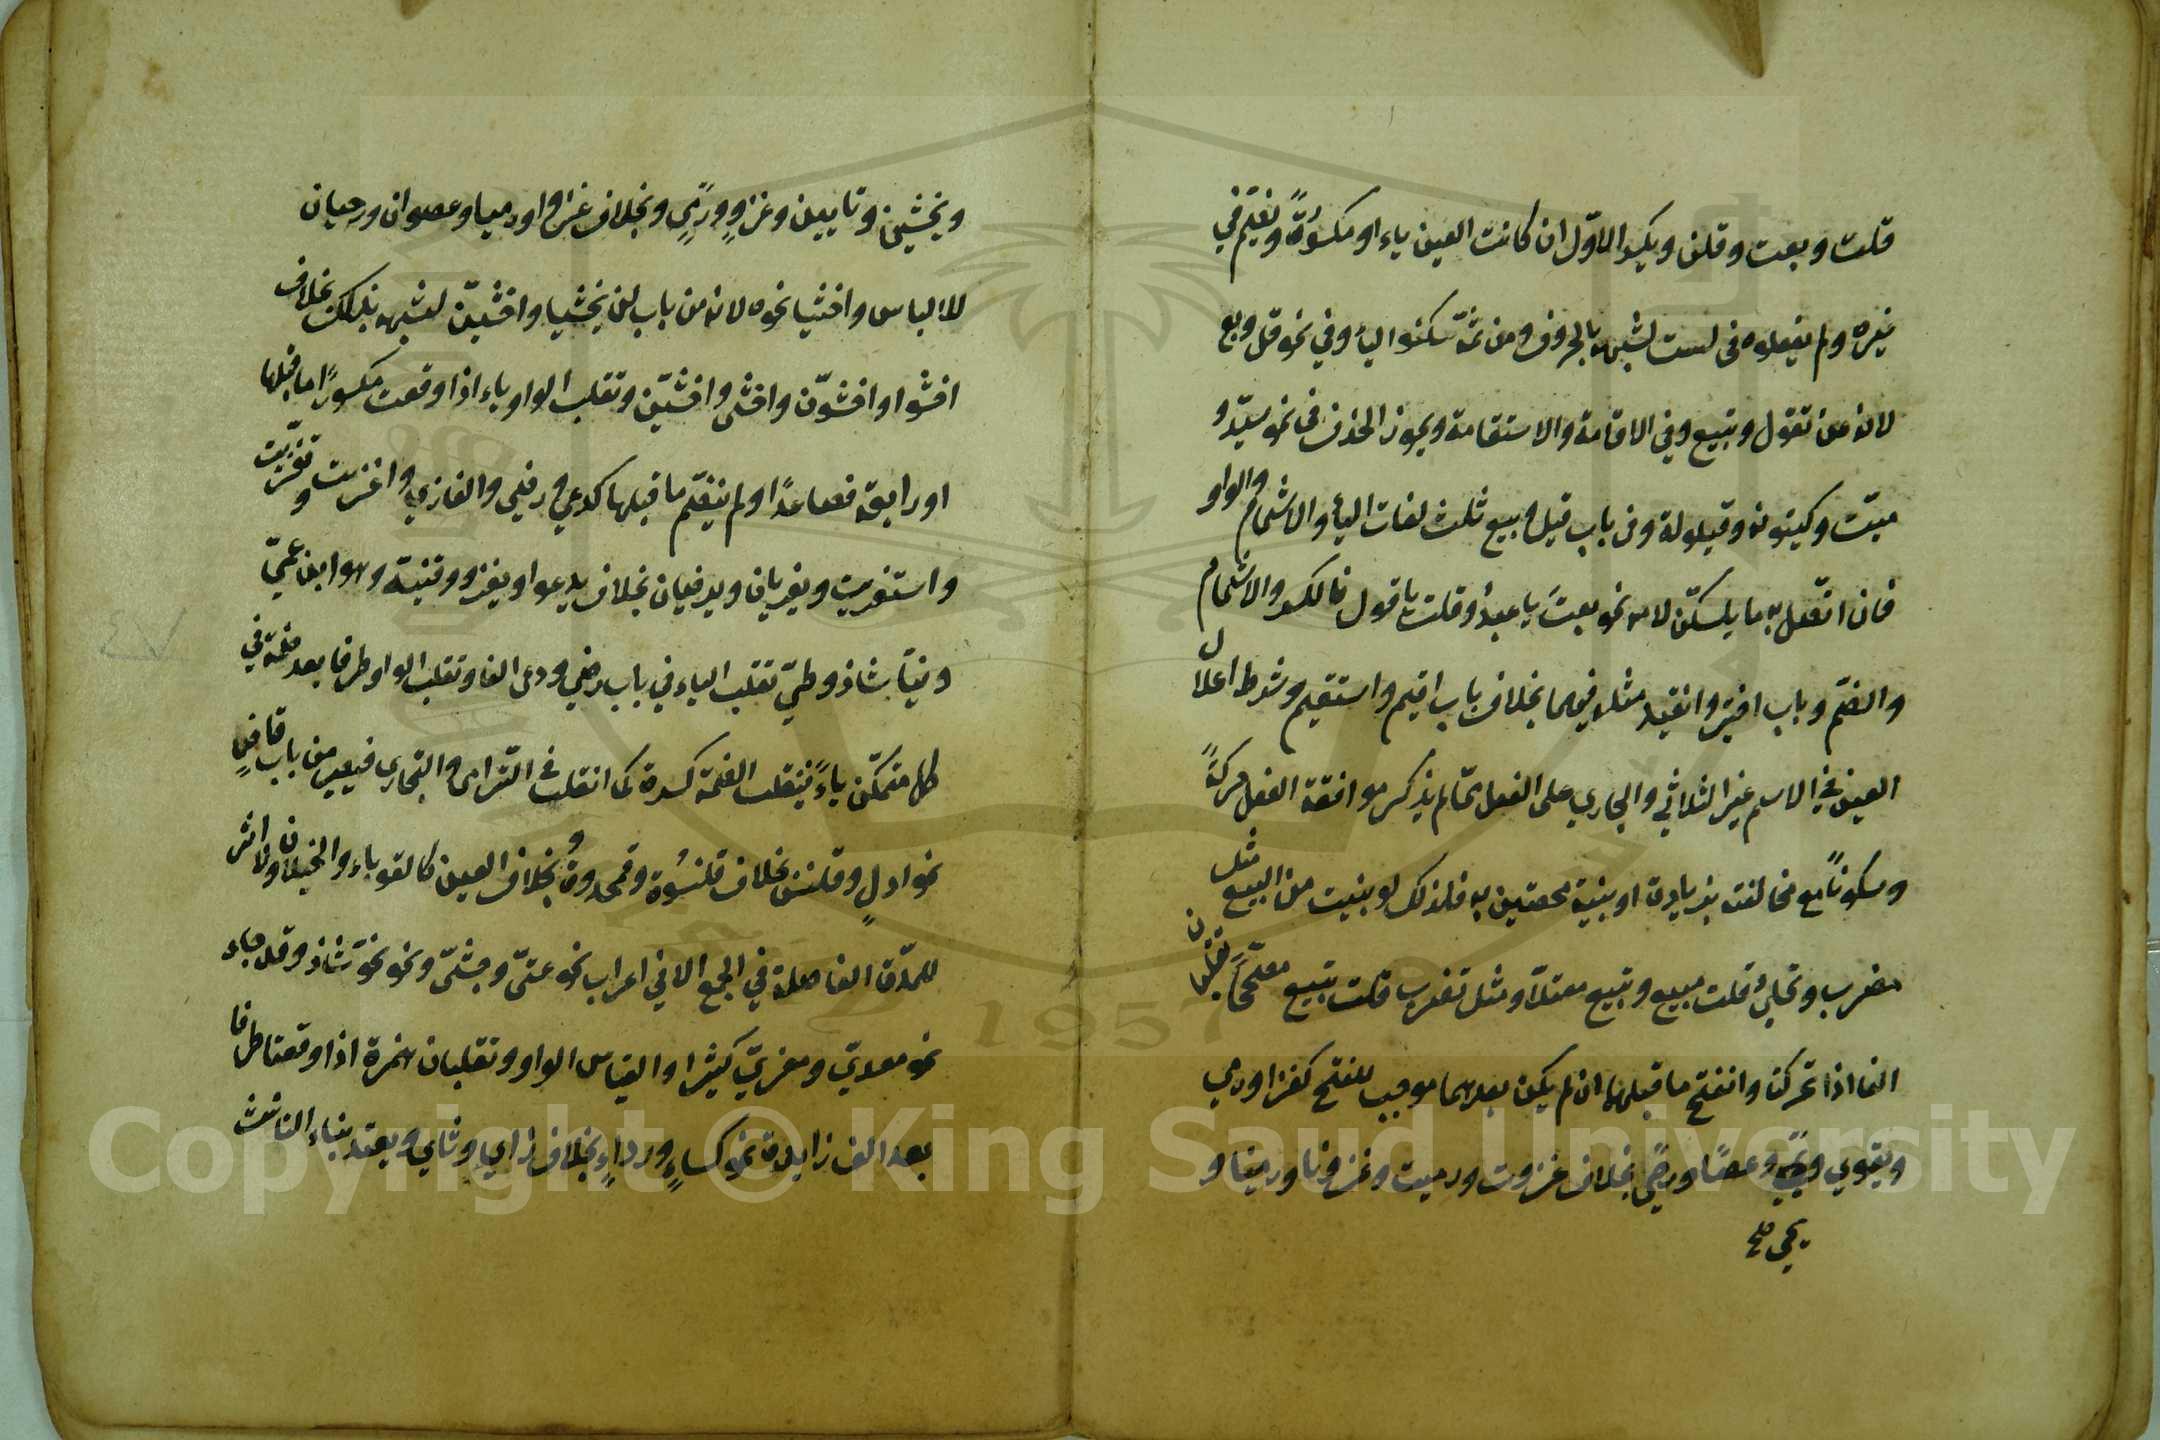 قلت وبعت وقلن ويكسر الاوّل ان كانت العين ياء او مكسورةً ويضم في
غيره ولم يفعلوه في لست لشبهه بالحروف ومن ثمّ سكنوا الياء وفي نحو قل وبع
لانه عن تقول وتبيع وفي الاقامة والاستقامة ويجوز الحذف في نحو سيّد و
ميّت وكينونة وقيلولة وفي باب قيل وبيع ثلث لغات الياء والاشمام والواو
فان اتصل به ما يسكّن لامه نحو بعتَ يا عبد وقلت يا قول فالكسر والاشمام
والضم وباب اختير وانقيد مثله فيهما بخلاف باب اقيم واستقيم وشرط اعلال
العين في الاسم غير الثلاثي والجاري على الفعل ممّا لم يذكر موافقة الفعل حركةً
وسكونًا مع مخالفة بزيادة او بنية مخصتين به فلذلك لو بنيت من البيع مثل
مضرب وتحلئ قلت مبيع وتبيع معتلاً ومثل تضرب قلت تبيع مصحّحًا تقلبان
الفا اذا تحركتا وانفتح ما قبلهما ان لم يكن بعدهما موجب للفتح كغزا ورمي
ويقوي ويحيي وعصًا ورحًى بخلاف غزوت ورميت وغزونا ورمينا و
يخشين وتابين وغزوٍ ورميٍ وبخلاف غزوا ورميا وعصوان ورحيان
للالباس واخشيا نحوه لانه من باب لن يخشيا واخشينّ لشبهه بذلك بخلاف
اخشوا واخشونّ واخشي واخشينّ وتقلب الواو ياء اذا وقعت مكسورًا ما قبلها
او رابعة فصاعدًا ولم ينضم ما قبلها كدعي ورضي والغازي واغزيت وتغزّيت
واستغزيت ويغزيان ويرضيان بخلاف يدعوا ويغزو وقنية وهو ابن عميّ
ودنيا شاذ وطيّ تقلب الياء في باب رضي ودعي الفا وتقلب الواو طرفا بعد ضمة في
كل متمكّن ياءً فينقلب الضمة كسرة كما انقلبت في الترامي والتجاري فيصير من باب قاضٍ
نحو ادلٍ وقلنسٍ بخلاف قلنسُوة وقمحدوة وبخلاف العين كالقوباء والخيلاء ولا اثر
للمدّة الفاصلة في الجمع الا في اعراب نحو عتيّ وجثيّ ونحو نحوّ شاذ وقد جاء
نحو معديّ ومغزيّ كثيرا والقياس الواو وتقلبان همزة اذا وقعتا طرفا
بعد الف زايدة نحو كساءٍ ورداءٍ بخلاف زاي وثاي ويعتد بتاء التانيث
Copyright © King Saud University
1957